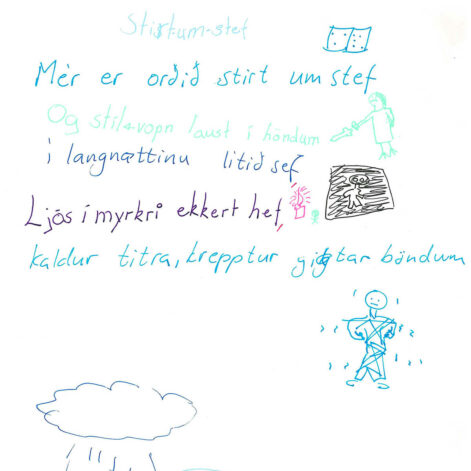 Stirtum-stef
Mér er orðið stirt um stef
Og stílvopn laust í höndum
í langnættinu lítið sef
Ljós í myrkri ekkert hef
kaldur titra, krepptur gigtar böndum